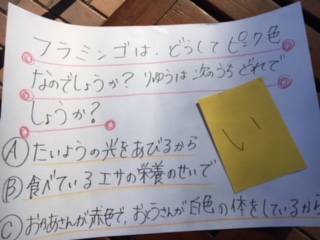 フラミンゴは、どうしてピンク色
なのでしょうか? りゆうは次のうちどれで
しょうか?
い
Ⓐ たいようの光をあびるから
Ⓑ 食べているエサの栄養のせいで
Ⓒ おかあさんが赤色で、おとうさんが白色の体をしているから